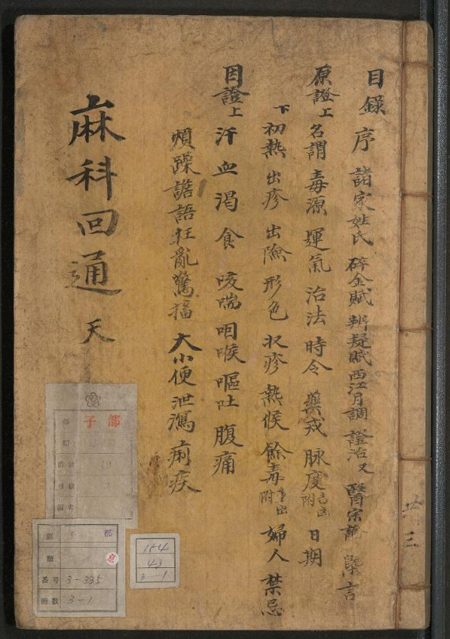 目錄 序 諸家姓氏 碎金賦 辨疑賦 西江月調 證治又 醫宗說 槩言
原證上 名謂 毒源 運氣 治法 時令 藥戒 脉度 日期
下 初熱 出疹 出險 形色 收疹 熱候 餘毒 婦人 禁忌
因證上 汗 血 渴 食 咳喘 咽喉 嘔吐 腹痛
煩躁 譫語 狂亂 驚搐 大小便 泄瀉 痢疾
麻科回通 天
共三
子部
番号 3-395
冊数 3-1
164
43
3-1